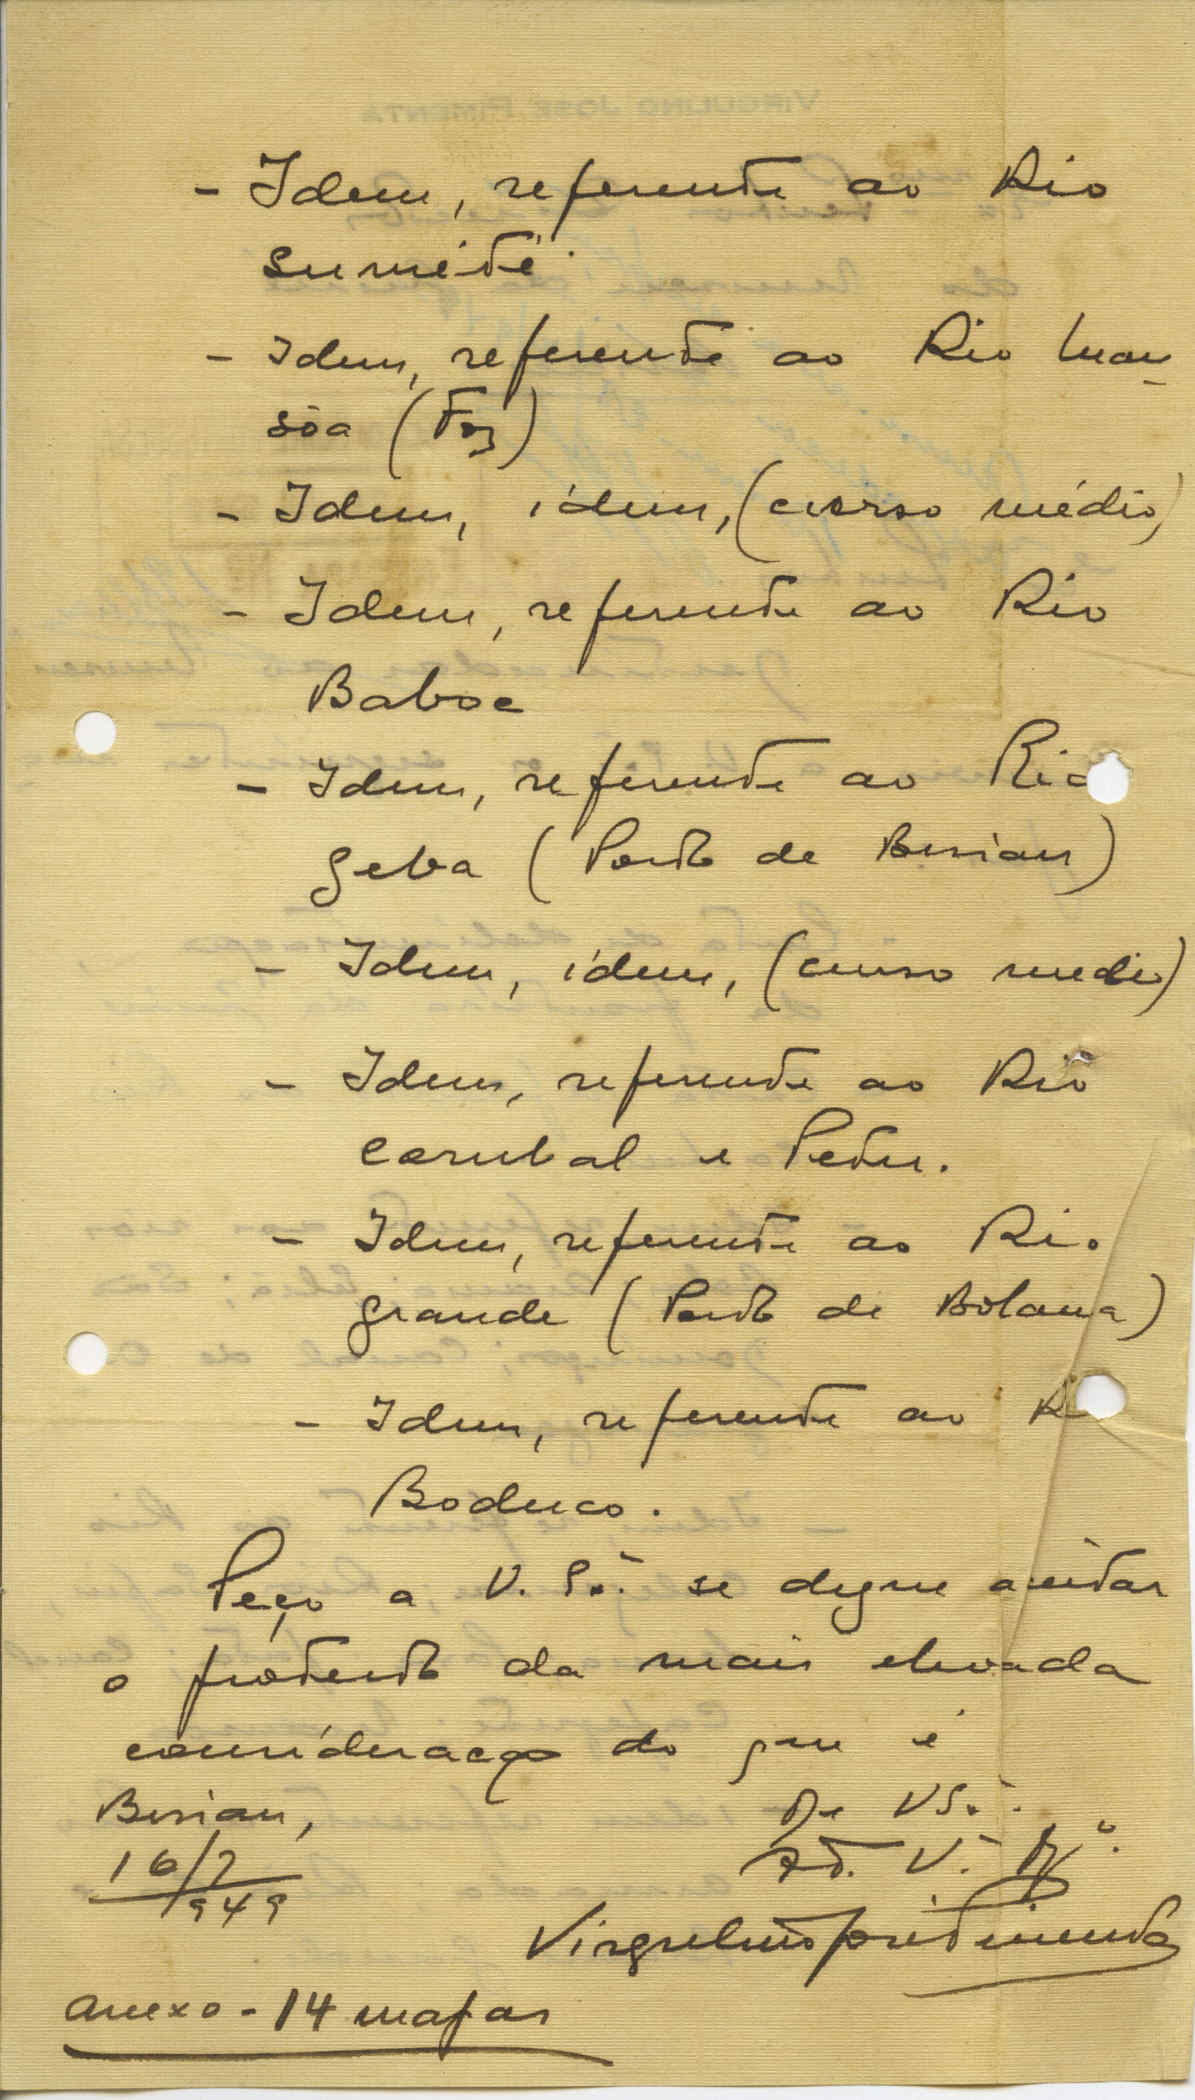 - Idem, referente ao Rio
Sumété.
- Idem, referente ao Rio Man-
sôa (Foz)
- Idem, idem, (curso médio)
- Idem, referente ao Rio
Baboc
- Idem, referente ao Rio
Geba (Porto de Bissau)
- Idem, idem, (curso medio)
- Idem, referente ao Rio
Corubal e
- Idem, referente ao Rio
grande (Porto de Bolama)
- Idem, referente ao R
Boduco.
Peço a V. Sª. se digne aceitar
o protesto da mais elevada
consideração do que é
Bissau,
De V Sª.
16/7
Atº. Vº.
949
Virgulino José Pimenta
Anexo - 14 mapas